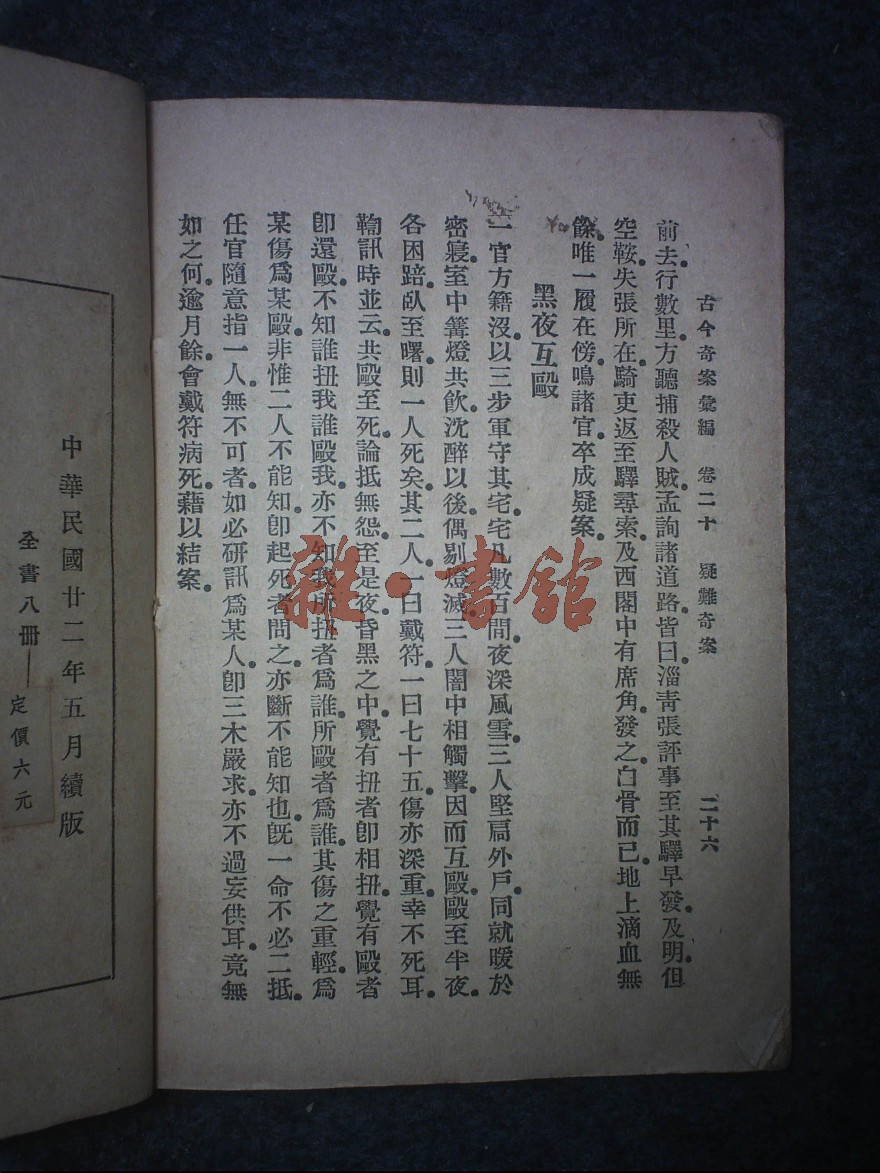 古今奇案彙編　卷二十　疑難奇案　二十六
前去。行數里。方聽捕殺人賊。孟詢諸道路。皆曰。淄靑張評事至其驛早發。及明。但
空鞍。失張所在。騎吏返至驛尋索。及西閣中有席角。發之。白骨而已。地上滴血無
餘。唯一履在傍。鳴諸官。卒成疑案。
黑夜互毆
一官方籍沒。以三步軍守其宅。宅凡數百間。夜深風雪。三人堅扃外戶。同就暖於
密寢室中。篝燈共飮。沈醉以後。偶剔燈滅。三人闇中相觸擊。因而互毆。毆至半夜。
各困踣臥。至曙。則一人死矣。其二人。一曰戴符。一曰七十五。傷亦深重。幸不死耳。
鞫訊時並云。共毆至死。論抵無怨。至是夜昏黑之中。覺有扭者卽相扭。覺有毆者
卽還毆。不知誰扭我誰毆我。亦不知我所扭者爲誰。所毆者爲誰。其傷之重輕。爲
某傷爲某毆。非惟二人不能知。卽起死者問之。亦斷不能知也。旣一命不必二抵。
任官隨意指一人。無不可者。如必硏訊爲某人。卽三木嚴求。亦不過妄供耳。竟無
如之何。逾月餘。會戴符病死。藉以結案。
中華民國廿二年五月續版
全書八冊—定價六元
雜·書館